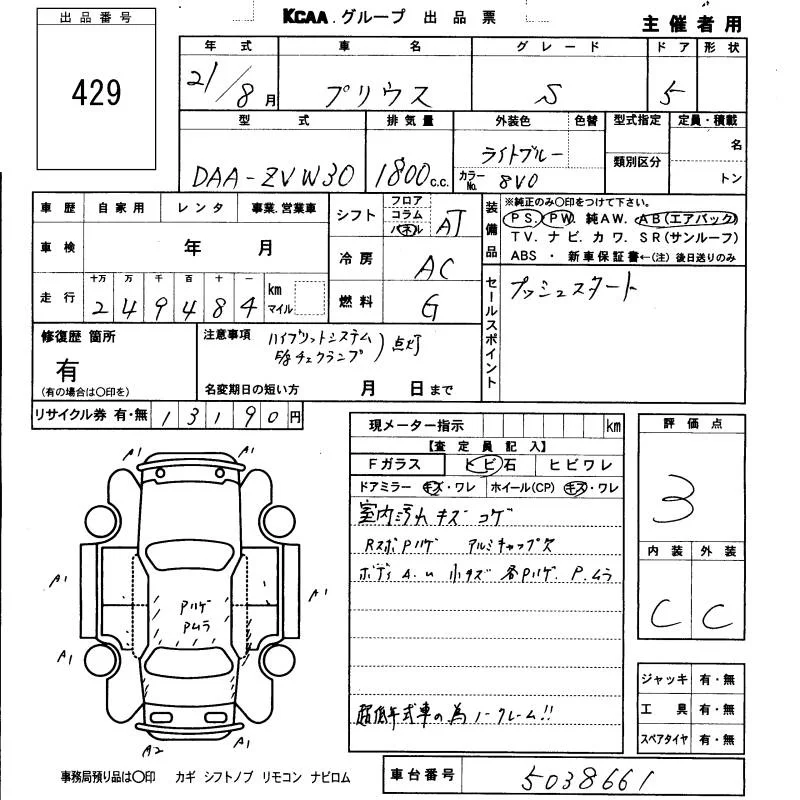 出品番号
429
KCAA.グループ 出品票
主催者用
年式 車名 グレード ドア 形状
21/8月 プリウス S 5
型式 排気量 外装色 色替 型式指定 定員・積載
DAA-ZVW30 1800c.c. ライトブルー 名
カラーNo. 8V0 類別区分 トン
車歴 自家用 レンタ 事業.営業車
車検 年 月
走行 十万 万 千 百 十 一 km マイル
2 4 9 4 8 4
シフト フロア コラム パネル AT
冷房 AC
燃料 G
装備品
※純正のみ〇印をつけて下さい。
PS. PW. 純AW. AB(エアバック)
TV. ナビ. カワ. SR(サンルーフ)
ABS ・ 新車保証書←(注) 後日送りのみ
セールスポイント
プッシュスタート
修復歴 箇所
有
(有の場合は〇印を)
注意事項
ハイブリットシステム
E/gチェクランプ)点灯
名変期日の短い方 月 日まで
リサイクル券 有・無 13190円
現メーター指示 km
【査定員記入】
Fガラス トビ石 ヒビワレ
ドアミラー キズ・ワレ ホイール(CP) キズ・ワレ
室内汚れ キズ コゲ
RスポPハゲ アルミキャップ欠
ボディA.U 小キズ 各Pハゲ.P.ムラ
超低年式車の為ノークレーム!!
評価点
3
内装 外装
C C
ジャッキ 有・無
工具 有・無
スペアタイヤ 有・無
A1 A1
A1 A1
Pハゲ
Pムラ
A1 A1
A2 A1
事務局預り品は〇印 カギ シフトノブ リモコン ナビロム
車台番号 5038661